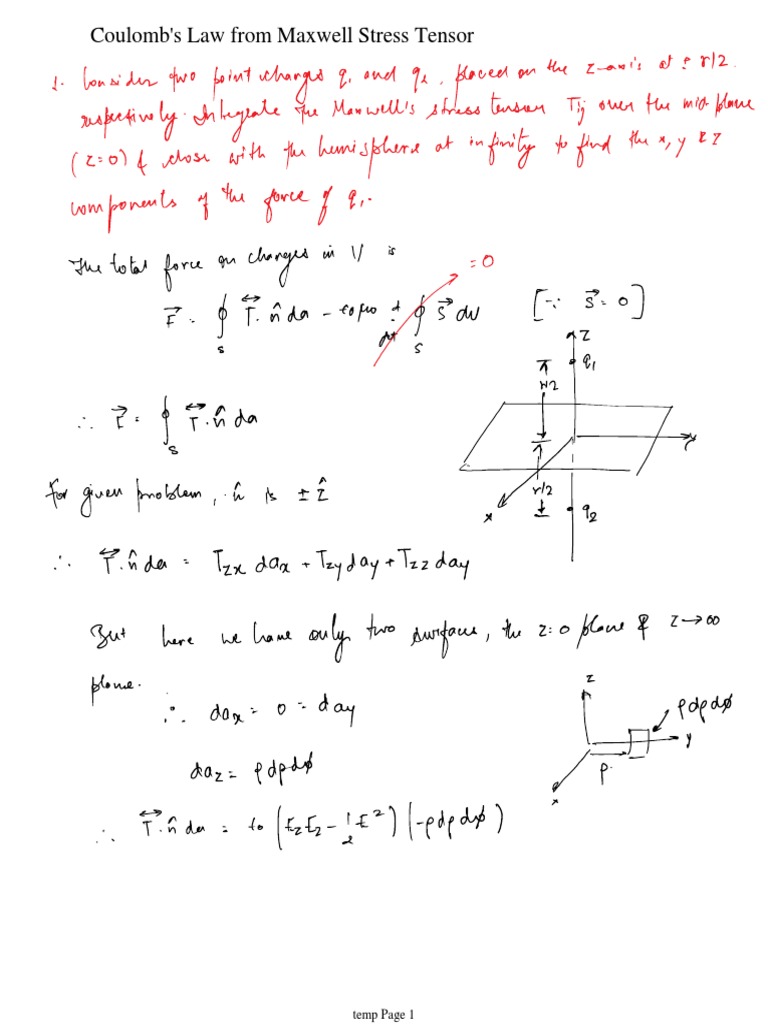 Coulomb's Law from Maxwell Stress Tensor
1. Consider two point charges q₁ and q₂, placed on the z-axis at ± r/2
respectively. Integrate the Maxwell's stress tensor Tij over the mid-plane
(z=0) & close with the hemisphere at infinity to find the x, y & z
components of the force of q₁.
The total force on charges in V is
F⃗ = ∮_S T⃡·n̂ da - ε₀μ₀ d/dt ∮_S S⃗ dv = 0 [∵ S⃗ = 0]
z
q₁
r/2
∴ F⃗ = ∮_S T⃡·n̂ da
y
For given problem, n̂ is ± ẑ
r/2
x
q₂
∴ T⃡·n̂ da = Tzx dax + Tzy day + Tzz day
But here we have only two surface, the z=0 plane & z→∞
plane.
∴ dax = 0 = day
z
ρdρdϕ
y
ρ
x
daz = ρdρdϕ
∴ T⃡·n̂ da = ε₀ (EzEz - 1/2 E²) (-ρdρdϕ)
temp Page 1